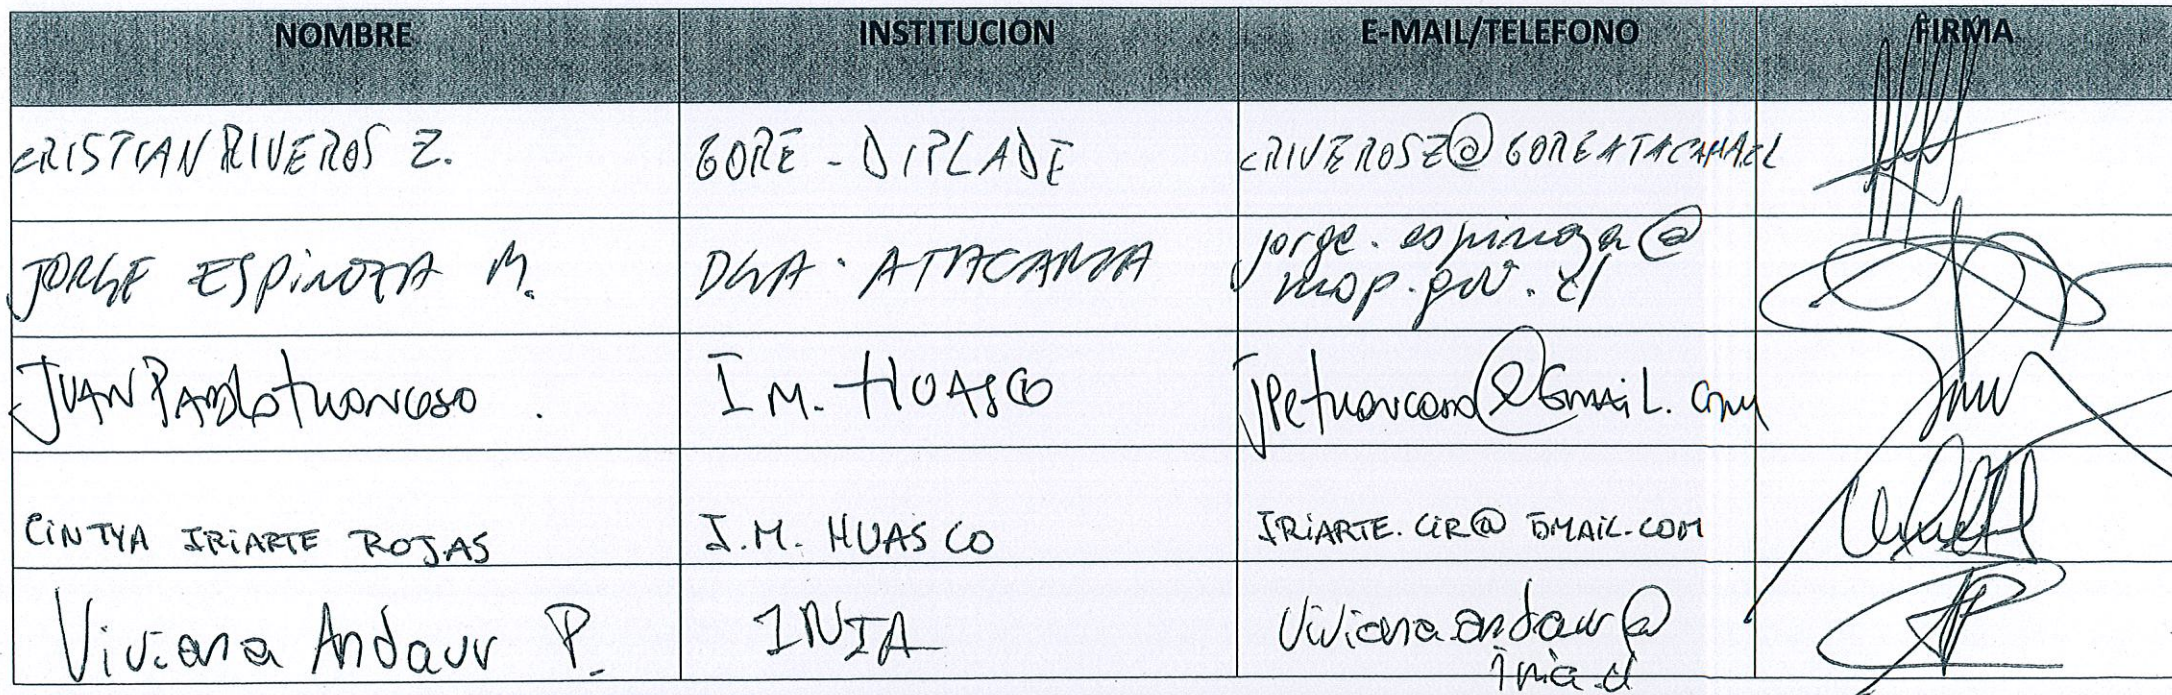 NOMBRE INSTITUCIÓN E-MAIL/TELEFONO FIRMA
CRISTIAN RIVEROS Z. GORE - DIPLADE CRIVEROSZ@GOREATACAMA.CL
JORGE ESPINOZA M. DGA. ATACAMA jorge.espinoza@
mop.gov.cl
JUAN PABLO I.M. HUASCO
CINTYA IRIARTE ROJAS I.M. HUASCO IRIARTE.CIR@GMAIL.COM
Viviana Andaur P. INIA Viviana.andaur@
inia.cl